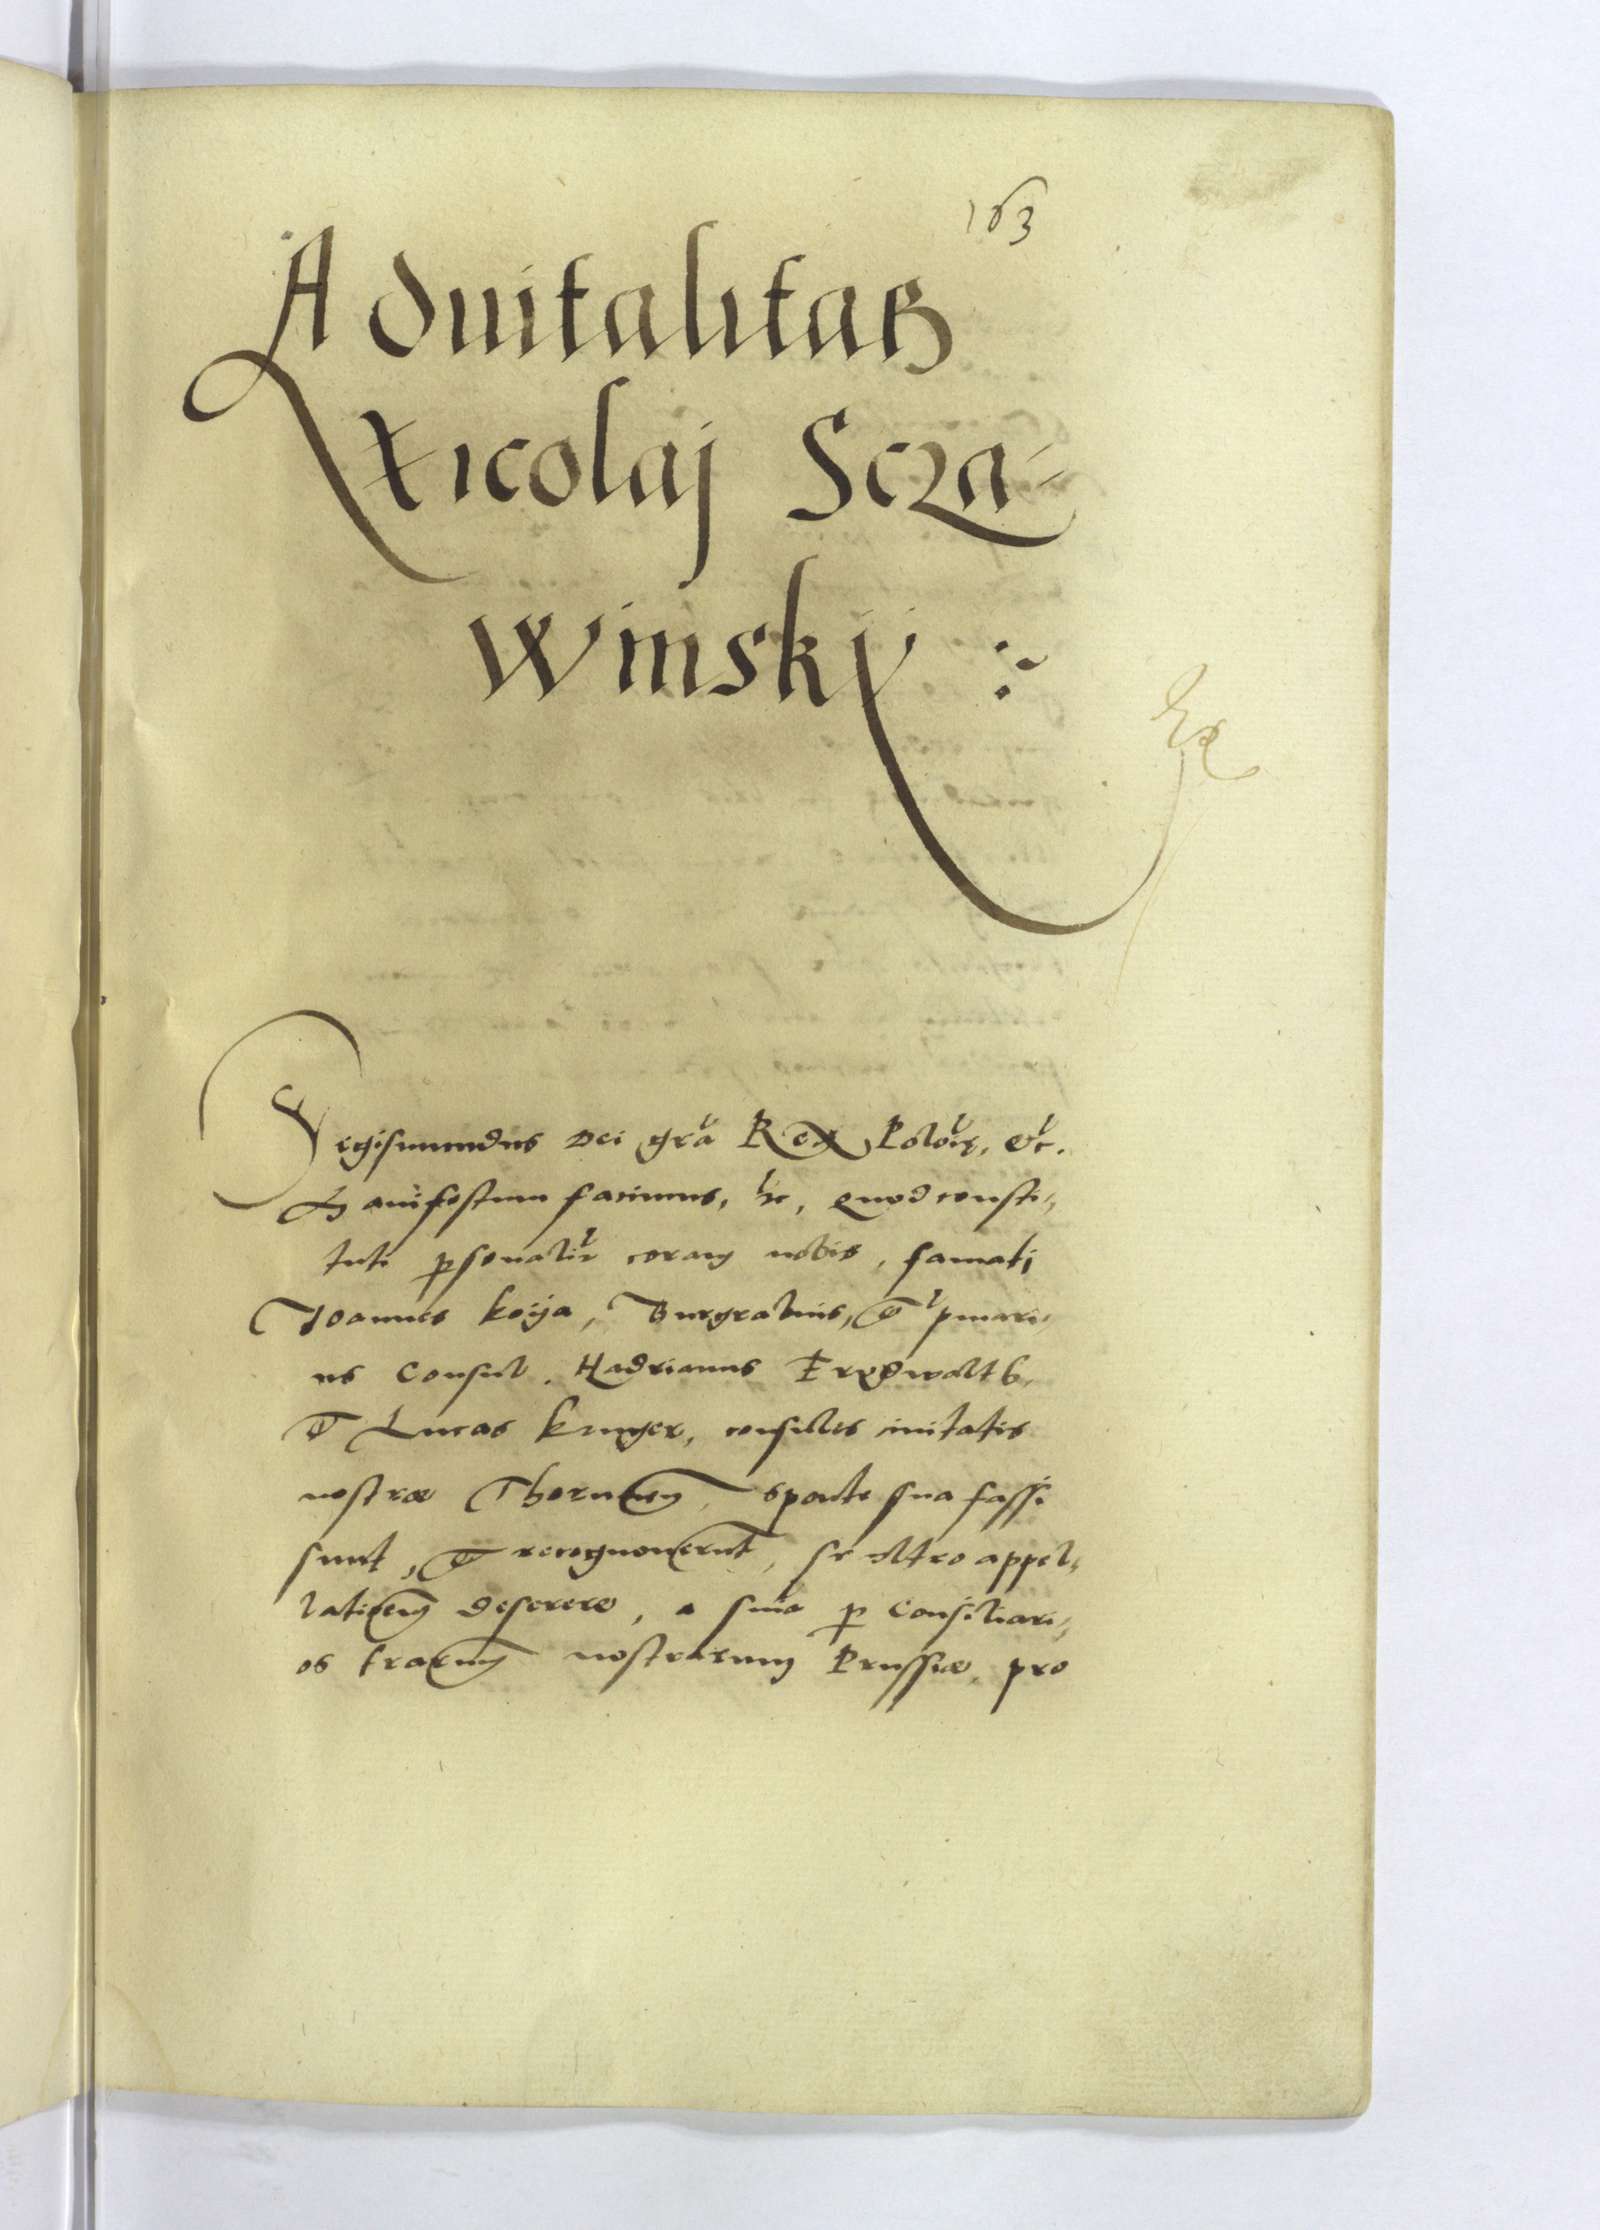 163
Aduitalitas
Nicolaj Scza-
winskj :~
Sigismundus Dei gra Rex Polonię, etc.
Manifestum facimus, etc, quod consti-
tuti psonalir coram nobis, famati
Ioannes koija, Burgrabius, et pmari-
us Consul. Hadrianus
et Lucas kruger, consules ciuitatis
nostræ Thorunen, sponte sua fassi
sunt, et recognouerut, se ultro appel-
lationem deserere, a snia p Consiliari-
os trarum nostrarum Prussiæ, pro